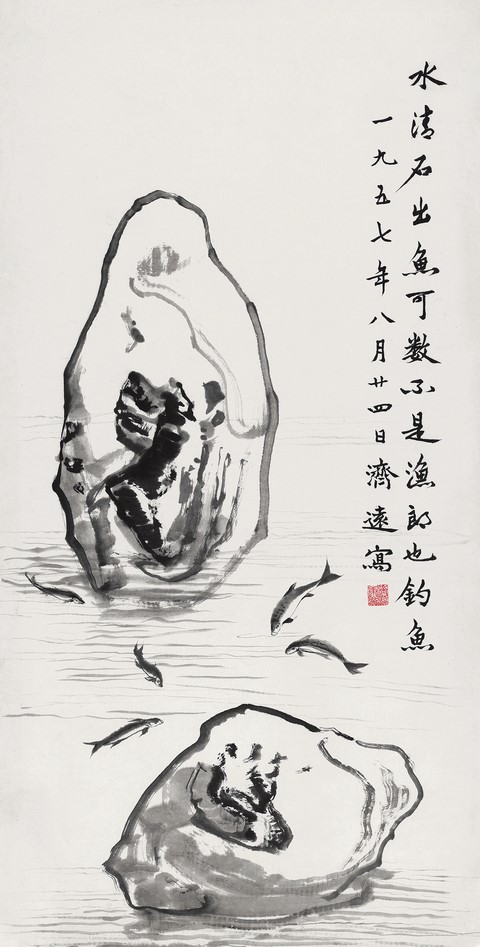 水清石出魚可数不是漁郎也釣魚
一九五七年八月廿四日濟遠寫